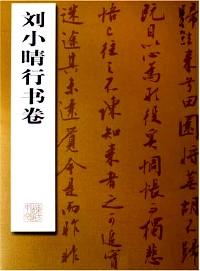 刘小晴行书卷
歸去来兮田園將蕪胡不歸
既自以心為形役奚惆悵而獨悲
悟已往之不諫知来者之可追實
迷途其未遠覺今是而昨非